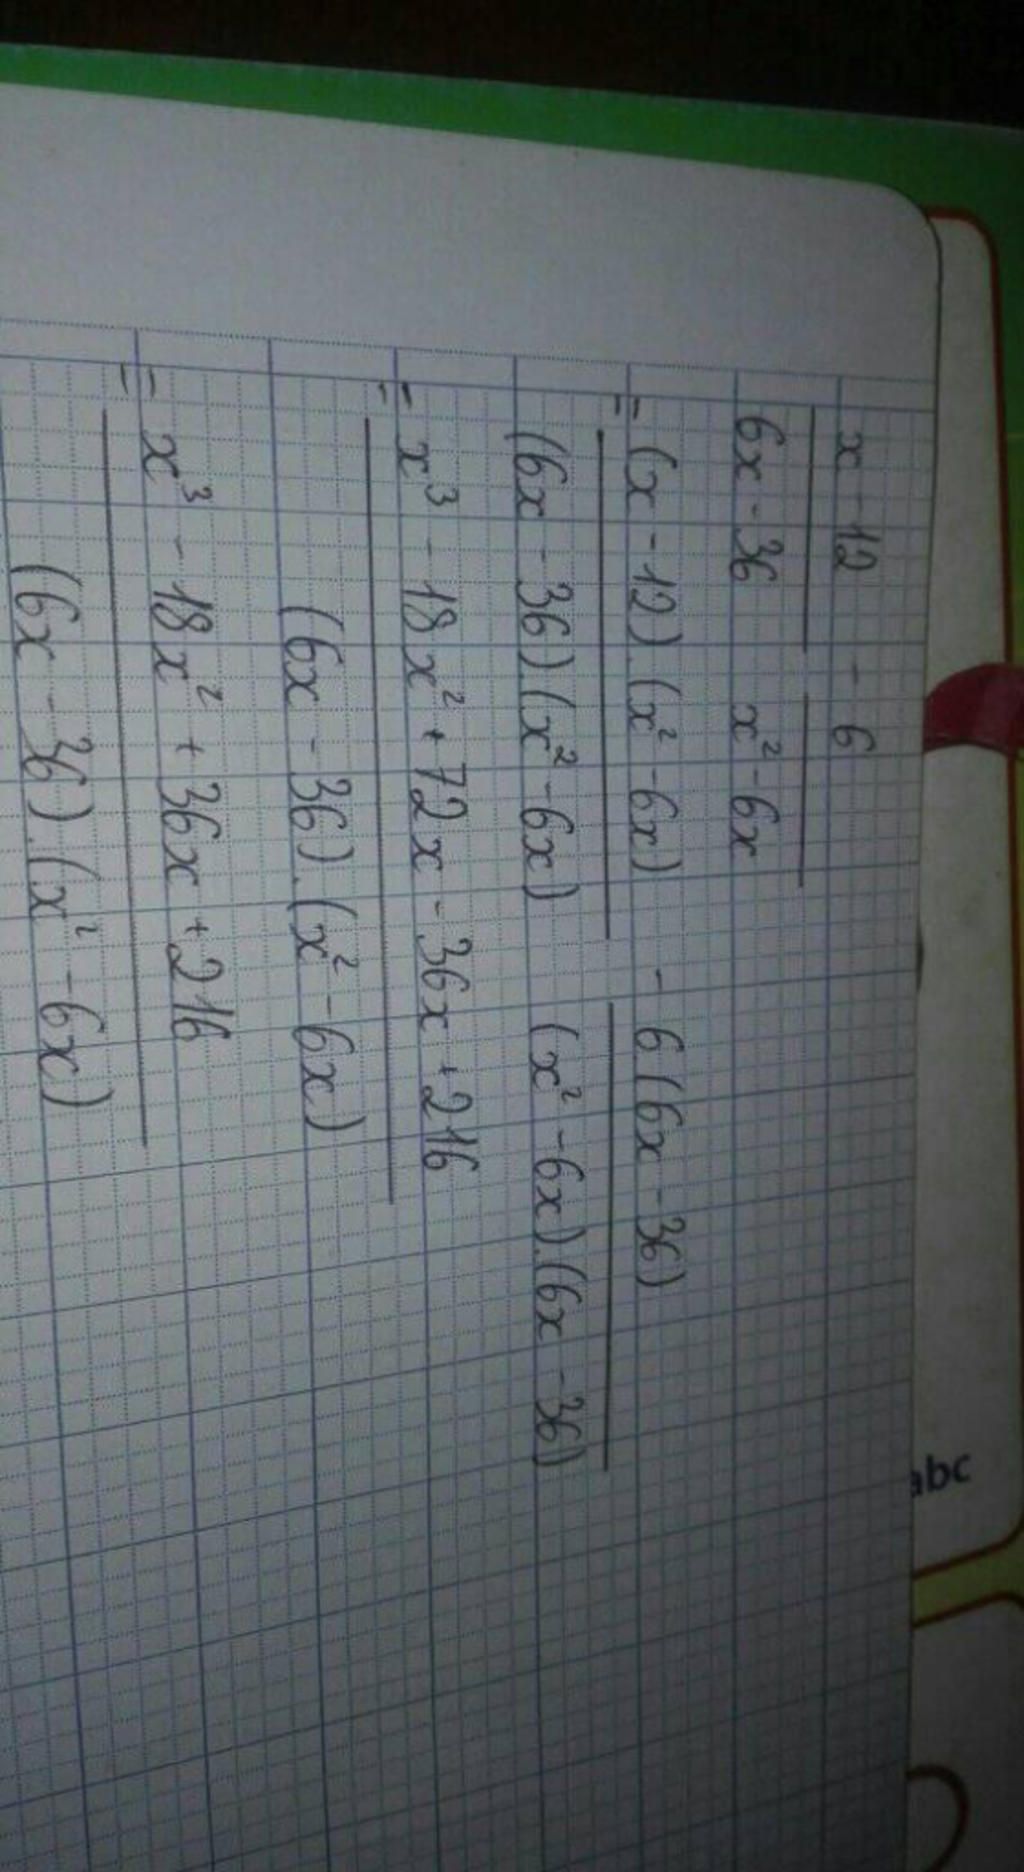 x - 12 - 6
6x - 36 x² - 6x
= (x - 12).(x² - 6x) - 6(6x - 36)
(6x - 36).(x² - 6x) (x² - 6x).(6x - 36)
= x³ - 18x² + 72x - 36x + 216
(6x - 36).(x² - 6x)
= x³ - 18x² + 36x + 216
(6x - 36).(x² - 6x)
abc